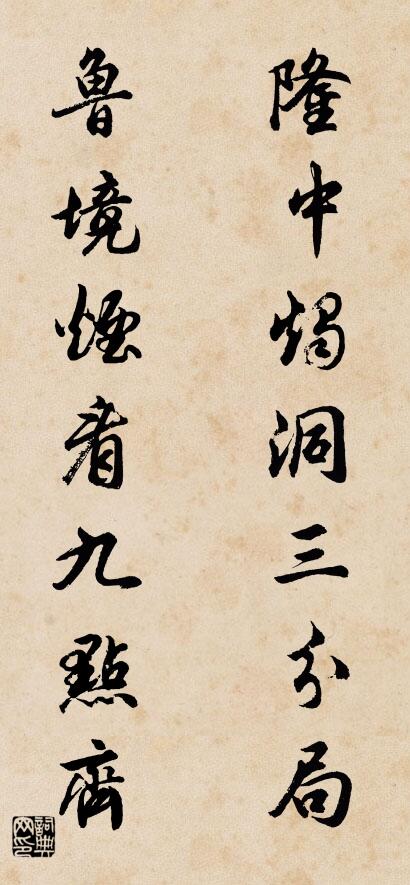 隆中燭洞三分局
魯境煙看九點齊
詞典網印